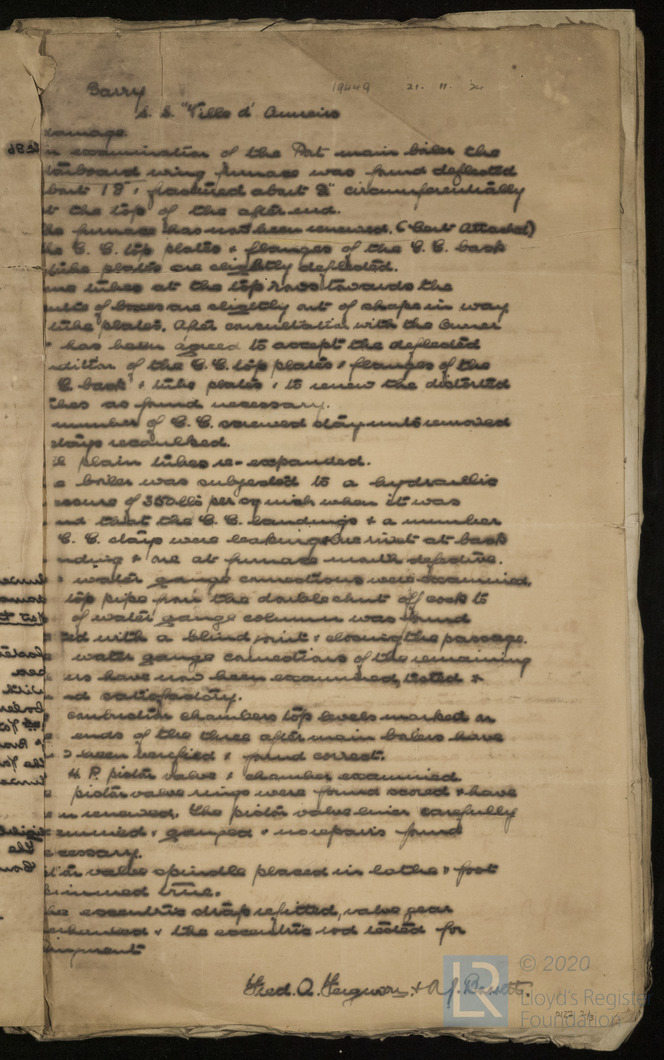 Barry 19449 21. 11. 24
S. S. "Ville d' Amiens
damage
n examination of the Port main boiler the
tarboard wing furnace was found deflected
bout 1 8 & fractured about 2" circumferentially
t the top of the after end.
he furnace has now been renewed. (Cert Attached)
he C. C. top plates & flanges of the C. C. back
tube plates are slightly deflected.
me tubes at the top rows towards the
of boxes are slightly out of shape in way
tube plates. After consultation with the Owner
has been agreed to accept the deflected
ndition of the C. C. top plates & flanges of the
C back & tube plates & to renew the distorted
bes as found necessary.
number of C. C. screwed stays nuts removed
stays recaulked.
plain tubes re-expanded.
e boiler was subjected to a hydraulic
essure of 350 lbs per sq inch when it was
nd that the C. C. landings & a number
C. C. stays were leaking & one rivet at back
nding & one at furnace mouth defective.
water gauge connections were examined.
top pipe from the double shut off cock to
of water gauge column was found
ted with a blind joint & closing the passage.
water gauge connections of the remaining
rs have now been examined, tested &
nd satisfactory.
combustion chambers top levels marked on
ends of the three after main boilers have
been verified & found correct.
H. P. piston valve & chamber examined
piston valve rings were found scored & have
n renewed. The piston valve liner carefully
examined & gauged & no repairs found
cessary.
ston valve spindle placed in lathe & foot
kimmed true.
he eccentric strap refitted, valve gear
& the eccentric rod tested for
lignment
Fred. A. Ferguson. & A. J. Bassett.
© 2020
LR
Lloyd's Register
Foundation